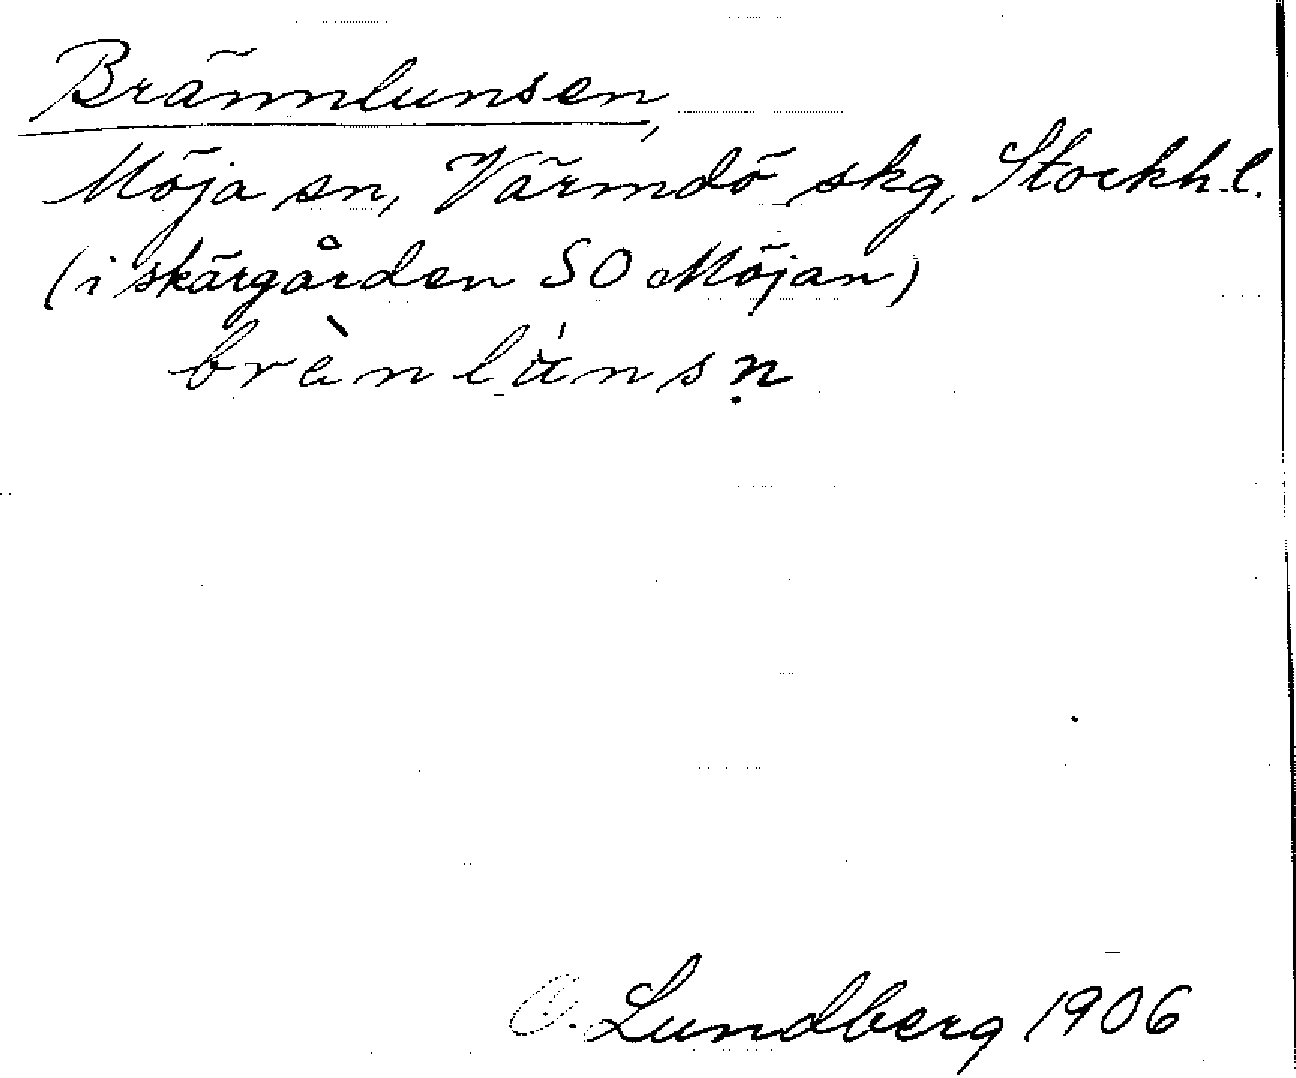 Brännlunsen,
Möja sn, Värmdö skg, Stockh. l.
(i skärgården SO Möjan)
brànlúnsṇ
O. Lundberg 1906